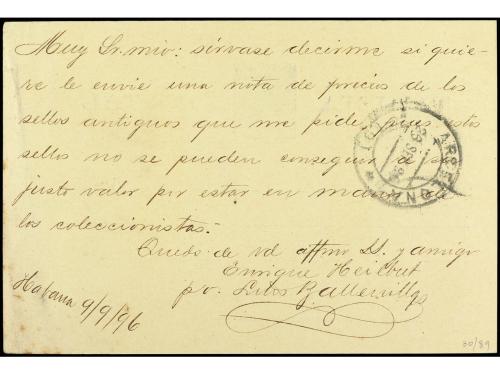 Muy Sr. mio: sírvase decirme si quie-
re le envie una nota de precios de los
sellos antiguos que me pide, pues estos
sellos no se pueden conseguir a su
justo valor por estar en manos de
los coleccionistas.
Quedo de vd affmo SS. y amigo
Enrique Heilbut
po.
Habana 9/9/96
30/89